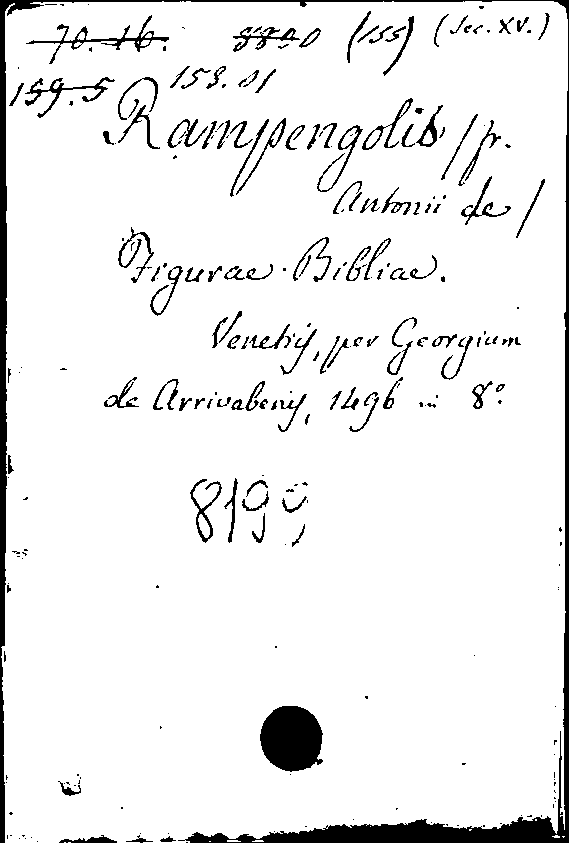 70.16. 8890 (155) (Sec. XV.)
159.5 159.01
Rampengolis / fr.
Antonii de /
Figurae Bibliae.
Venetijs, per Georgium
de Arrivabenis, 1496 in 8°
8199